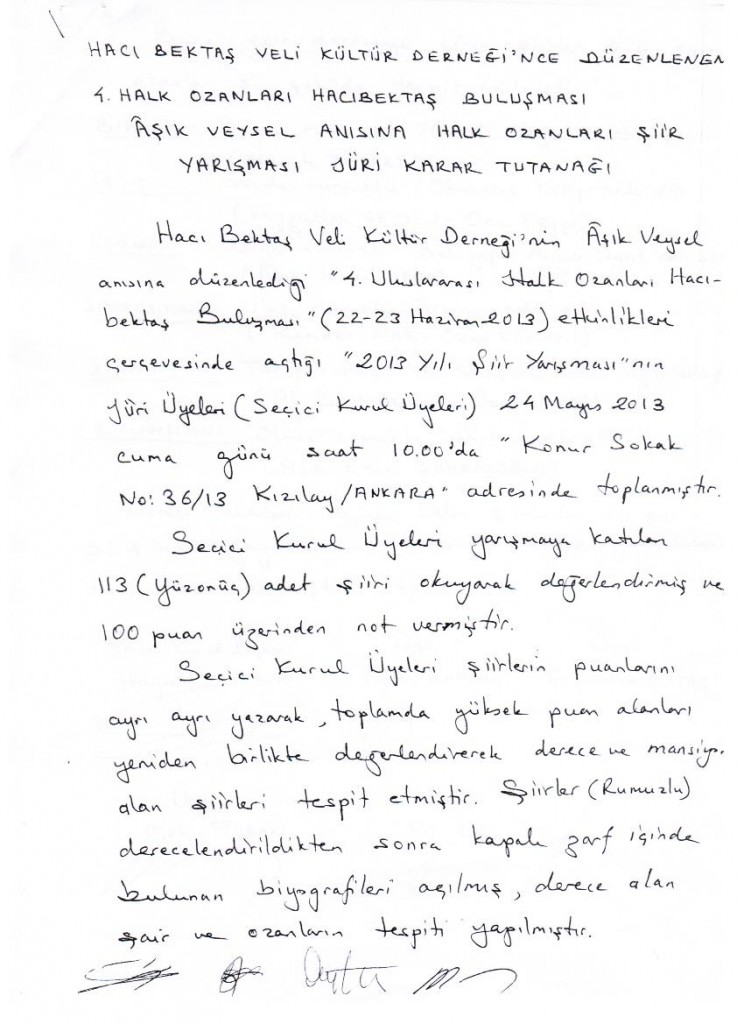 HACI BEKTAŞ VELİ KÜLTÜR DERNEĞİ'NCE DÜZENLENEN
4. HALK OZANLARI HACIBEKTAŞ BULUŞMASI
ÂŞIK VEYSEL ANISINA HALK OZANLARI ŞİİR
YARIŞMASI JÜRİ KARAR TUTANAĞI
Hacı Bektaş Veli Kültür Derneği'nin Âşık Veysel
anısına düzenlediği "4. Uluslararası Halk Ozanları Hacı-
bektaş Buluşması" (22-23 Haziran 2013) etkinlikleri
çerçevesinde açtığı "2013 Yılı Şiir Yarışması"nın
Jüri Üyeleri (Seçici Kurul Üyeleri) 24 Mayıs 2013
cuma günü saat 10.00'da "Konur Sokak
No: 36/13 Kızılay/ANKARA" adresinde toplanmıştır.
Seçici Kurul Üyeleri yarışmaya katılan
113 (Yüzonüç) adet şiiri okuyarak değerlendirmiş ve
100 puan üzerinden not vermiştir.
Seçici Kurul Üyeleri şiirlerin puanlarını
ayrı ayrı yazarak, toplamda yüksek puan alanları
yeniden birlikte değerlendirerek derece ve mansiyo.
alan şiirleri tespit etmiştir. Şiirler (Rumuzlu)
derecelendirildikten sonra kapalı zarf içinde
bulunan biyografileri açılmış, derece alan
şair ve ozanların tespiti yapılmıştır.